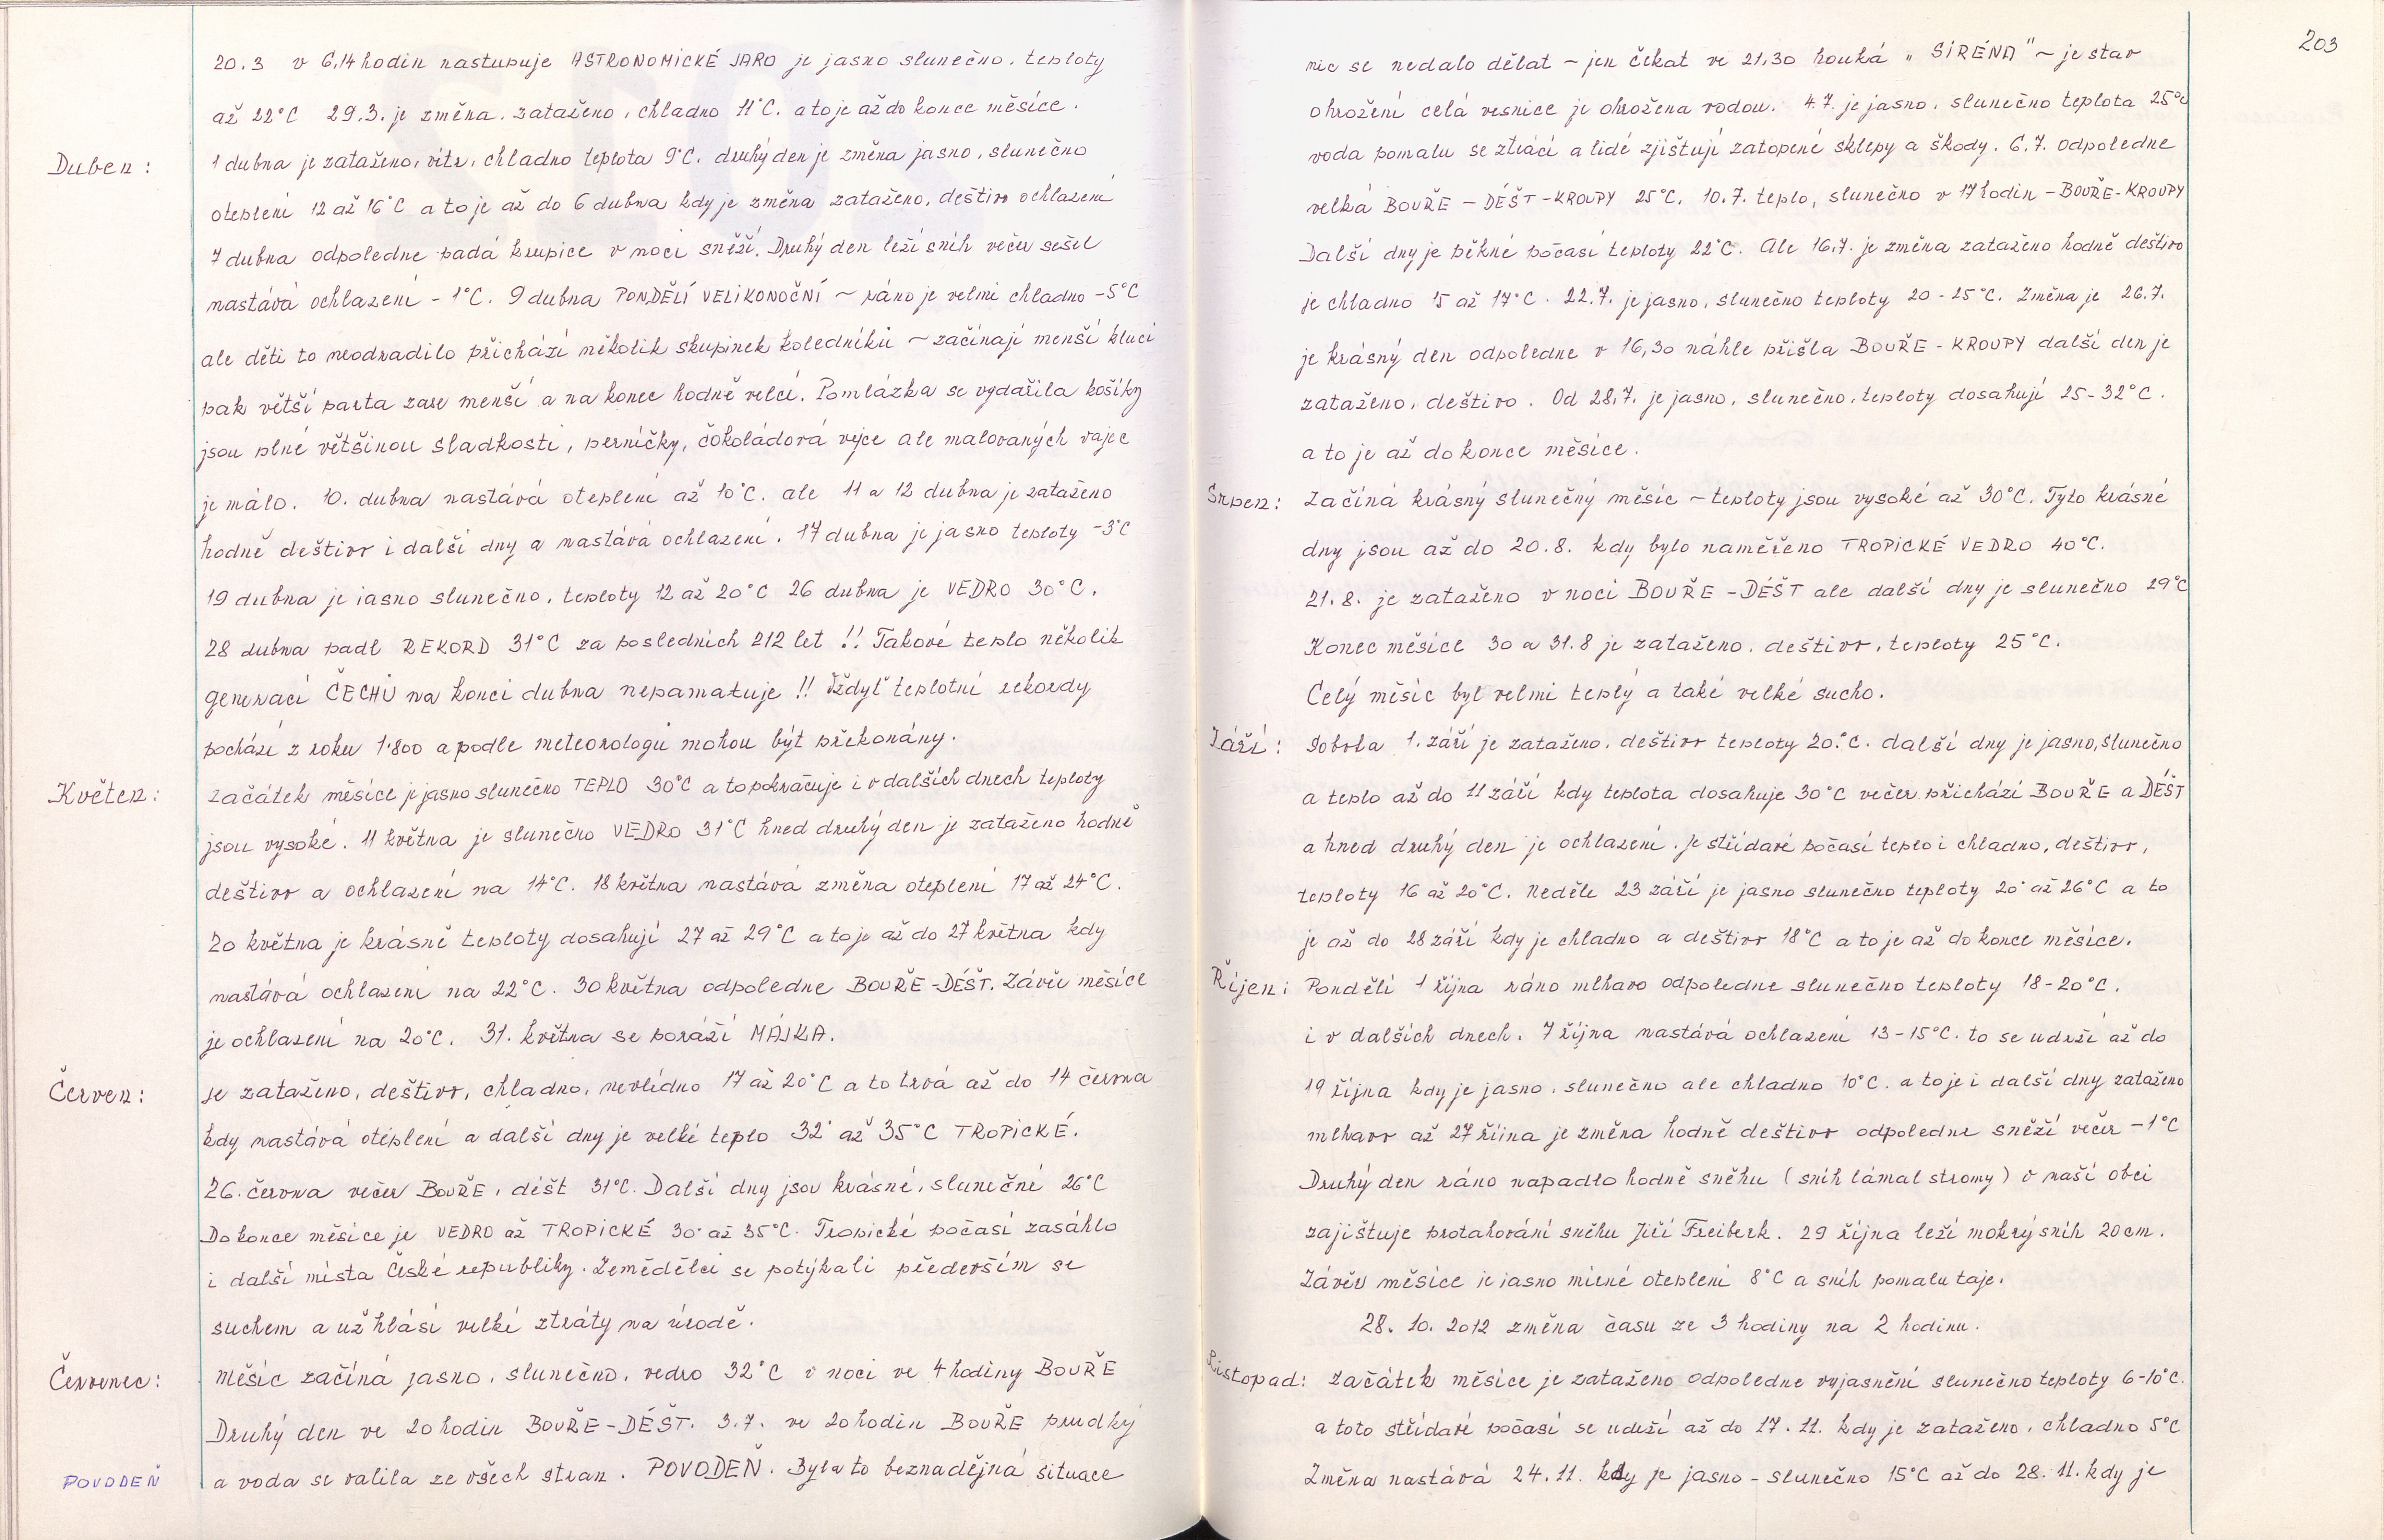 20.3 v 6,14 hodin nastupuje ASTRONOMICKÉ JARO je jasno slunečno, teploty
až 22°C 29.3. je změna. zataženo, chladno 11°C. a to je až do konce měsíce.
Duben: 1 dubna je zataženo, vítr, chladno teplota 9°C. druhý den je změna jasno, slunečno
oteplení 12 až 16°C a to je až do 6 dubna kdy je změna zataženo, deštivo ochlazení
7 dubna odpoledne padá krupice v noci sněží. Druhý den leží sníh večer sešel
nastává ochlazení -1°C. 9 dubna PONDĚLÍ VELIKONOČNÍ ~ ráno je velmi chladno -5°C
ale děti to neodradilo přichází několik skupinek koledníků ~ začínají menší kluci
pak větší parta zase menší a na konec hodně velcí. Pomlázka se vydařila košíky
jsou plné většinou sladkosti, perníčky, čokoládová vejce ale malovaných vajec
je málo. 10. dubna nastává oteplení až 10°C. ale 11 a 12 dubna je zataženo
hodně deštivo i další dny a nastává ochlazení. 17 dubna je jasno teploty -3°C
19 dubna je jasno slunečno, teploty 12 až 20°C 26 dubna je VEDRO 30°C.
28 dubna padl REKORD 31°C za posledních 212 let !! Takové teplo několik
generací ČECHŮ na konci dubna nepamatuje !! Vždyť teplotní rekordy
pochází z roku 1.800 a podle meteorologů mohou být překonány.
Květen: začátek měsíce je jasno slunečno TEPLO 30°C a to pokračuje i v dalších dnech teploty
jsou vysoké. 11 května je slunečno VEDRO 31°C hned druhý den je zataženo hodně
deštivo a ochlazení na 14°C. 18 května nastává změna oteplení 17 až 24°C.
20 května je krásně teploty dosahují 27 až 29°C a to je až do 27 května kdy
nastává ochlazení na 22°C. 30 května odpoledne BOUŘE-DÉŠT. Závěr měsíce
je ochlazení na 20°C. 31. května se poráží MÁJKA.
Červen: je zataženo, deštivo, chladno, nevlídno 17 až 20°C a to trvá až do 14 června
kdy nastává oteplení a další dny je velké teplo 32° až 35°C TROPICKÉ.
26. června večer BOUŘE, déšt 31°C. Další dny jsou krásné, slunečné 26°C
Do konce měsíce je VEDRO až TROPICKÉ 30° až 35°C. Tropické počasí zasáhlo
i další místa České republiky. Zemědělci se potýkali především se
suchem a už hlásí velké ztráty na úrodě.
Červenec: Měsíc začíná jasno, slunečno, vedro 32°C v noci ve 4 hodiny BOUŘE
Druhý den ve 20 hodin BOUŘE-DÉŠT. 3.7. ve 20 hodin BOUŘE prudký
POVODEŇ a voda se valila ze všech stran. POVODEŇ. Byla to beznadějná situace
203
nic se nedalo dělat ~ jen čekat ve 21,30 houká „ SIRÉNA" ~ je stav
ohrožení celá vesnice je ohrožena vodou. 4.7. je jasno, slunečno teplota 25°C
voda pomalu se ztrácí a lidé zjištují zatopené sklepy a škody. 6.7. odpoledne
velká BOUŘE - DÉŠT-KROUPY 25°C. 10.7. teplo, slunečno v 17 hodin - BOUŘE-KROUPY
Další dny je pěkné počasí teploty 22°C. Ale 16.7. je změna zataženo hodně deštivo
je chladno 15 až 17°C. 22.7. je jasno, slunečno teploty 20-25°C. Změna je 26.7.
je krásný den odpoledne v 16,30 náhle přišla BOUŘE - KROUPY další den je
zataženo, deštivo. Od 28.7. je jasno, slunečno, teploty dosahují 25-32°C.
a to je až do konce měsíce.
Srpen: Začíná krásný slunečný měsíc ~ teploty jsou vysoké až 30°C. Tyto krásné
dny jsou až do 20.8. kdy bylo naměřeno TROPICKÉ VEDRO 40°C.
21.8. je zataženo v noci BOUŘE - DÉŠT ale další dny je slunečno 29°C
Konec měsíce 30 a 31.8 je zataženo, deštivo, teploty 25°C.
Celý měsíc byl velmi teplý a také velké sucho.
Září: Sobota 1. září je zataženo, deštivo teploty 20°C. další dny je jasno, slunečno
a teplo až do 11 září kdy teplota dosahuje 30°C večer přichází BOUŘE a DÉŠT
a hned druhý den je ochlazení. je střídavé počasí teplo i chladno, deštivo,
teploty 16 až 20°C. Neděle 23 září je jasno slunečno teploty 20° až 26°C a to
je až do 28 září kdy je chladno a deštivo 18°C a to je až do konce měsíce.
Říjen: Pondělí 1 října ráno mlhavo odpoledne slunečno teploty 18-20°C.
i v dalších dnech. 7 října nastává ochlazení 13-15°C. to se udrží až do
19 října kdy je jasno, slunečno ale chladno 10°C. a to je i další dny zataženo
mlhavo až 27 října je změna hodně deštivo odpoledne sněží večer -1°C
Druhý den ráno napadlo hodně sněhu (sníh lámal stromy) v naší obci
zajištuje protahování sněhu Jiří Freiberk. 29 října leží mokrý sníh 20cm.
Závěr měsíce je jasno mírné oteplení 8°C a sníh pomalu taje.
28. 10. 2012 změna času ze 3 hodiny na 2 hodinu.
Listopad: začátek měsíce je zataženo odpoledne vyjasnění slunečno teploty 6-10°C.
a toto střídavé počasí se udrží až do 17. 11. kdy je zataženo, chladno 5°C
Změna nastává 24.11. kdy je jasno - slunečno 15°C až do 28. 11. kdy je